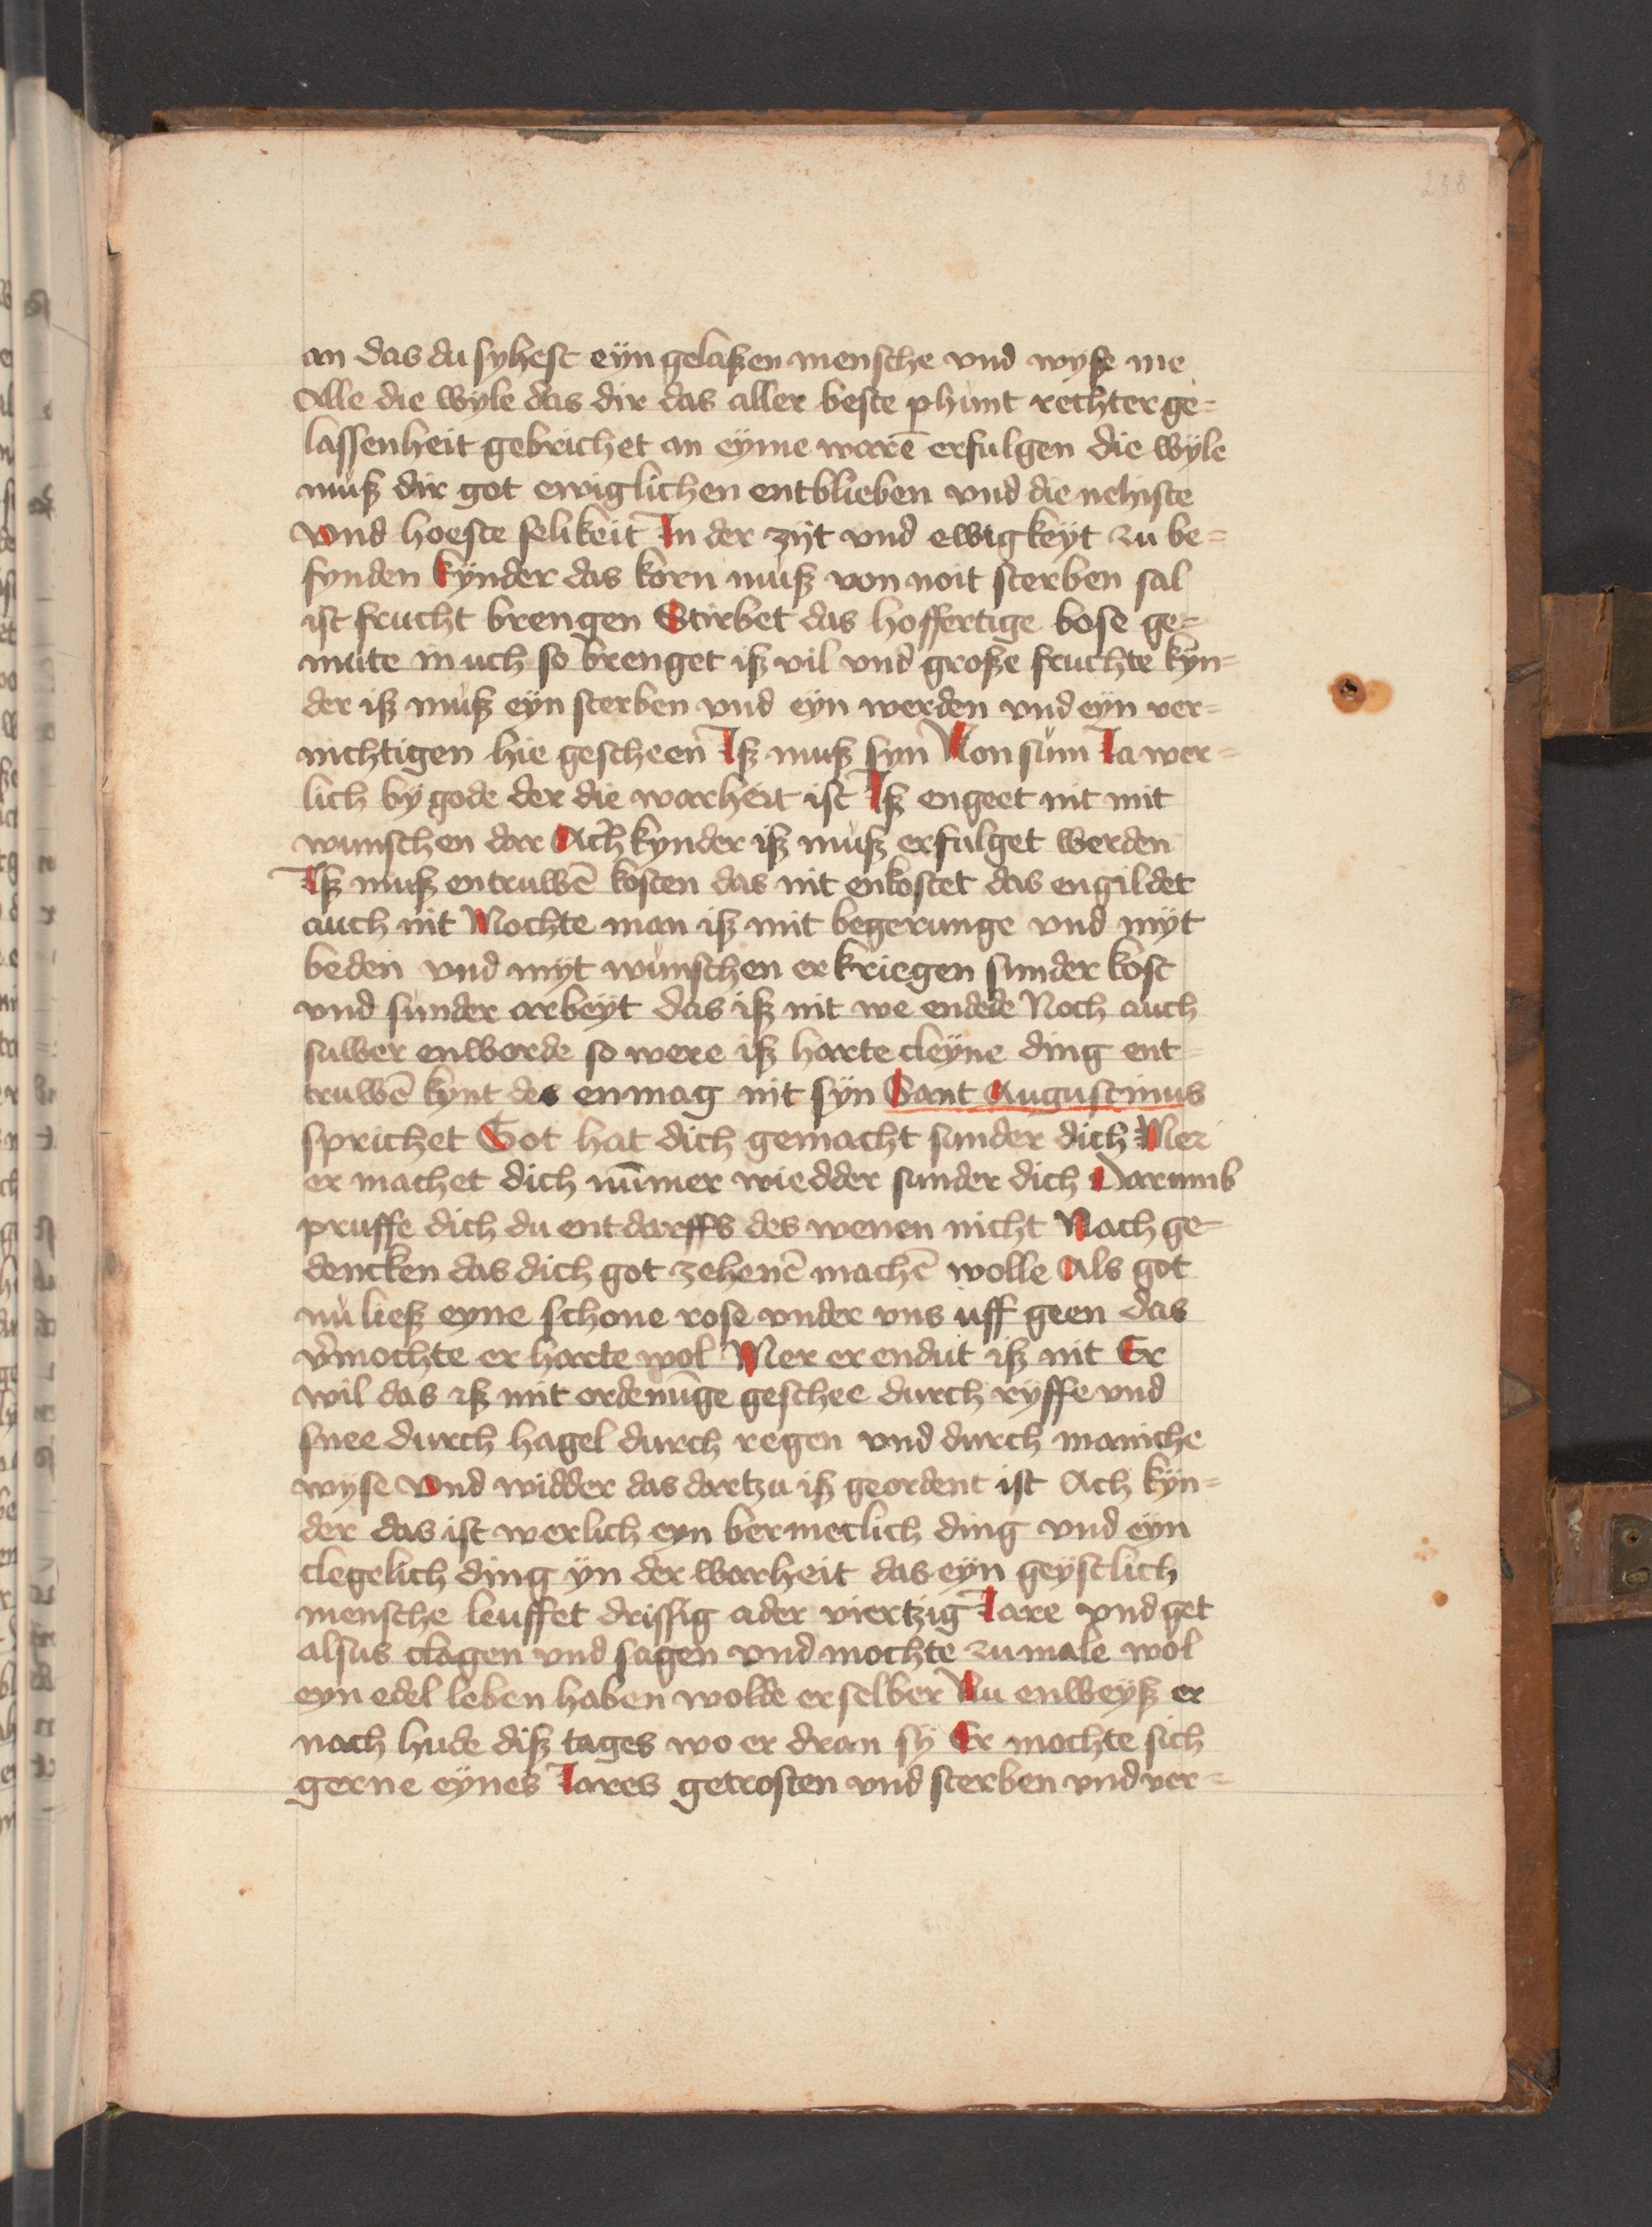 238
an das du syhest eyn gelaßen mensche vnd wyße me
Alle die wyle das dir das aller beste phunt rechter ge=
lassenheit gebrichet an eyme warē erfulgen die wyle
muß dir got ewiglichen entblieben vnd die nehiste
vnd hoeste selikeit In der zijt vnd ewigkeyt zu be=
fynden kynder das korn muß von noit sterben sal
ist frucht brengen Stirbet das hoffertige bose ge=
mute in uch so brenget iß vil vnd große fruchte kyn=
der iß muß eyn sterben vnd eyn werden vnd eyn ver=
nichtigen hie gescheen Iß muß syn Non sum Ia wer=
lich by gode der die warheit ist Iß engeet nit mit
wunschen dar Ach kynder iß muß erfulget werden
Iß muß entruwē kosten das nit enkostet das engildet
auch nit Mochte man iß mit begerunge vnd myt
beden vnd myt wunschen erkriegen sunder kost
vnd sunder arbeyt das iß nit we endede Noch auch
suwer enworde so were iß harte cleyne ding ent=
truwē kynt des enmag nit syn Sant Augustinus
sprichet Got hat dich gemacht sunder dich Mer
er machet dich nūmer wiedder sunder dich Darumb
pruffe dich du entdarffs des wenen nicht Nach ge=
dencken das dich got zehenē machē wolle Als got
nu ließ eyne schone rose vnder vns uff geen das
v̉mochte er harte wol Mer er endut iß nit Er
wil das iß mit ordenūge geschee durch ryffe vnd
snee durch hagel durch regen vnd durch maniche
wyse vnd widder das dartzu iß geordent ist Ach kyn=
der das ist werlich eyn bermetlich ding vnd eyn
clegelich ding yn der warheit das eyn geystlich
mensche leuffet drissig ader viertzig Iare vnd get
alsus clagen vnd sagen vnd mochte zumale wol
eyn edel leben haben wolde er selber Nu enweyß er
noch hude diß tages wo er dran sy Er mochte sich
gerne eynes Iares getrosten vnd sterben vnd ver=